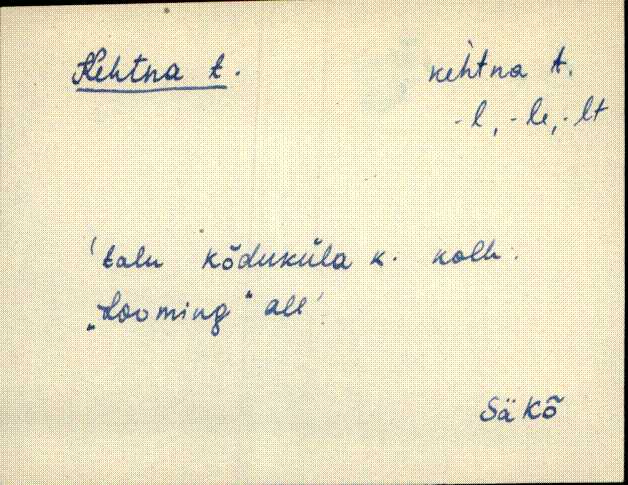 Kehtna t.
keh̀tna t.
-l, -le, -lt
'talu kõduküla k. kolh.
„Looming" all'
Sä Kõ